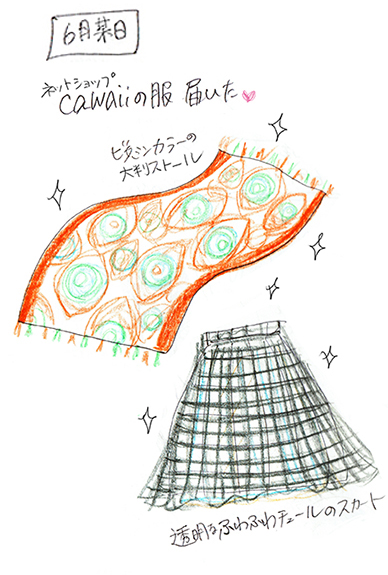 6月某日
ネットショップ
cawaiiの服 届いた♥
ビタミンカラーの
大判ストール
透明なふわふわチュールのスカート